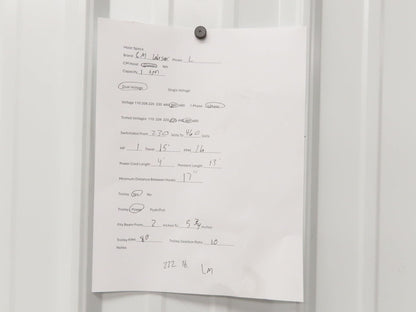 Hoist Specs
Brand CM Lodestar Model L
CM Hoist Yes No
Capacity 1 ton
Dual Voltage Single Voltage
Voltage 110 208 220 230 460 480 1 Phase 3 Phase
Tuned Voltage 110 208 220 230 460 480
Switchable From 230 Volts To 460 Volts
HP 1 Travel 15' FPM 16
Power Cord Length 4' Pendant Length 13'
Minimum Distance Between Hooks 17"
Trolley Yes No
Trolley Power Push/Pull
Fits Beam From 2 Inches To 5 3/4 Inches
Trolley FPM 80 Trolley Section Flats 10
Notes
222 lb LM